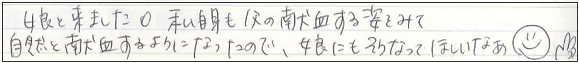 娘と来ました○ 私自身も父の献血する姿をみて
自然と献血するようになったので、娘にもそうなってほしいなあ